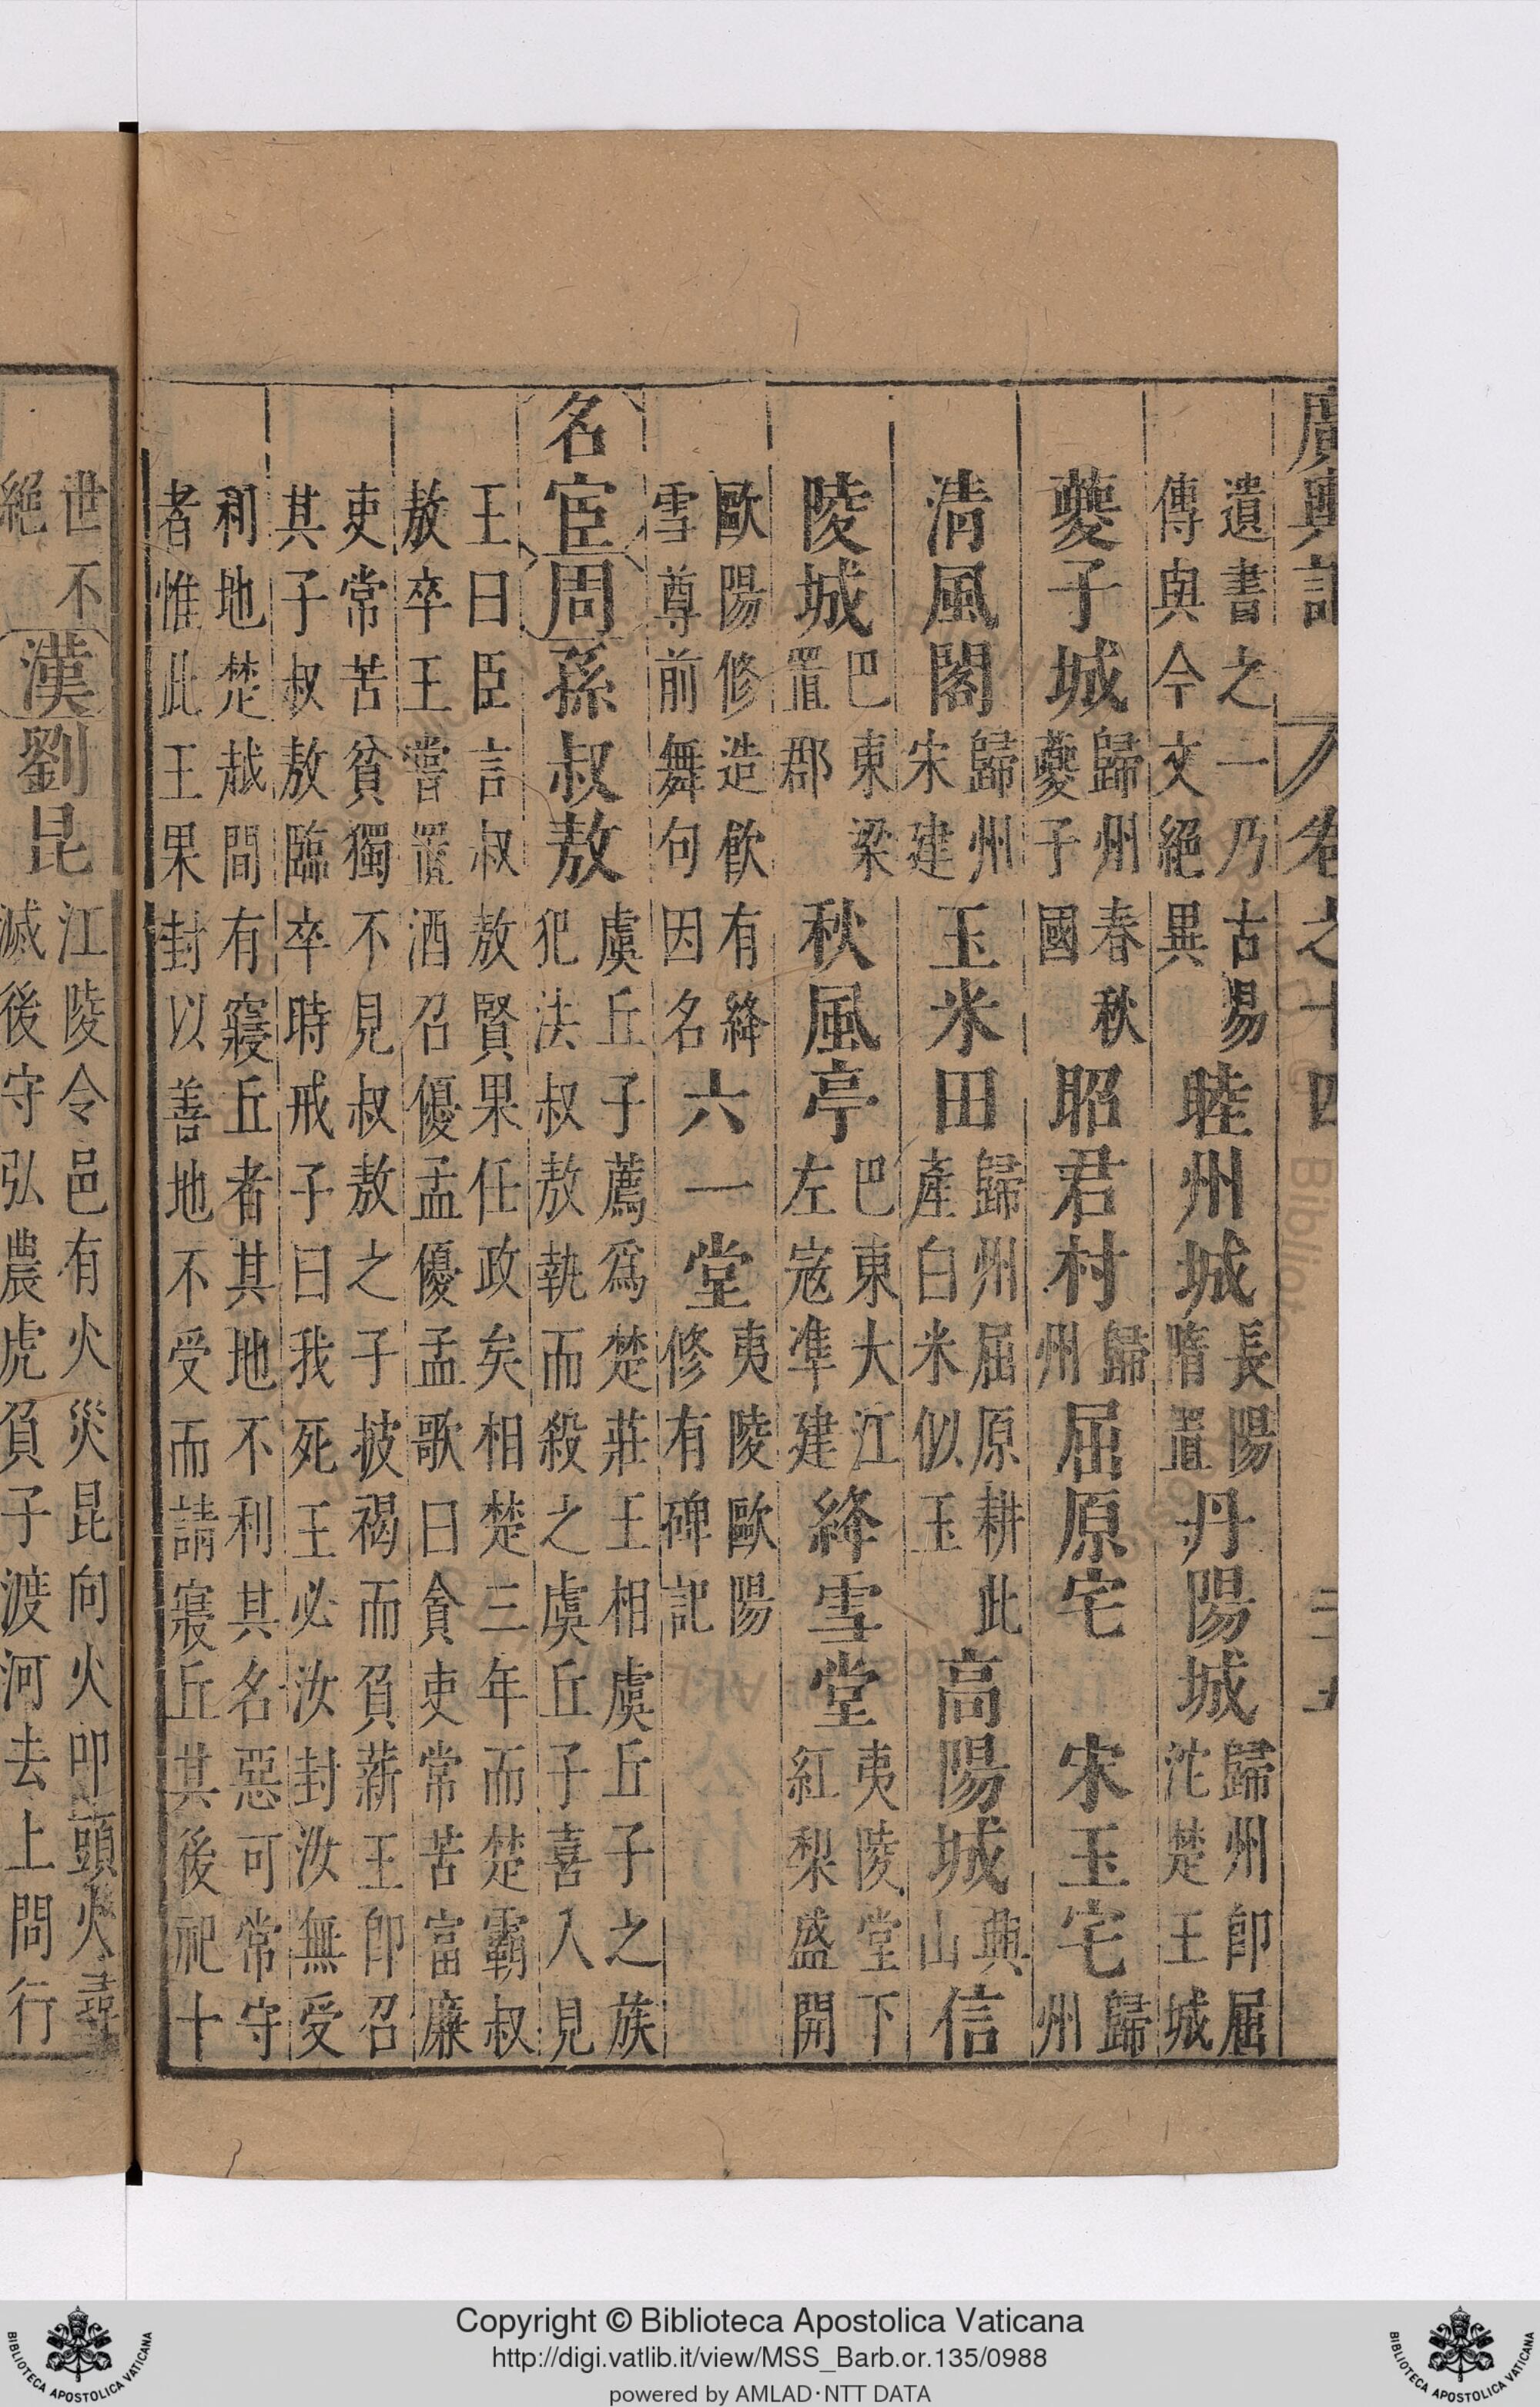 廣輿記 卷之十四
遺書之一乃古易傳與今文絕異睦州城長陽隋置丹陽城歸州卽屈沱楚王城
夔子城歸州春秋夔子國昭君村歸州屈原宅宋玉宅歸州
清風閣歸州宋建玉米田歸州屈原耕此產白米似玉高陽城興山信
陵城巴東梁置郡秋風亭巴東大江左寇凖建絳雪堂夷陵堂下紅梨盛開
歐陽修造飲有絳雪尊前舞句因名六一堂夷陵歐陽修有碑記
名宦周孫叔敖虞丘子薦爲楚莊王相虞丘子之族犯法叔敖執而殺之虞丘子喜入見
王曰臣言叔敖賢果任政矣相楚三年而楚霸叔
敖卒王嘗置酒召優孟優孟歌曰貪吏常苦富廉
吏常苦貧獨不見叔敖之子披褐而負薪王卽召
其子叔敖臨卒時戒子曰我死王必汝封汝無受
利地楚越間有寢丘者其地不利其名惡可常守
者惟此王果封以善地不受而請寢丘其後祀十
世不絕漢劉昆江陵令邑有火災昆向火叩頭火尋滅後守弘農虎負子渡河去上問行
Copyright © Biblioteca Apostolica Vaticana
http://digi.vatlib.it/view/MSS_Barb.or.135/0988
powered by AMLAD·NTT DATA
BIBLIOTECA APOSTOLICA VATICANA
BIBLIOTECA APOSTOLICA VATICANA